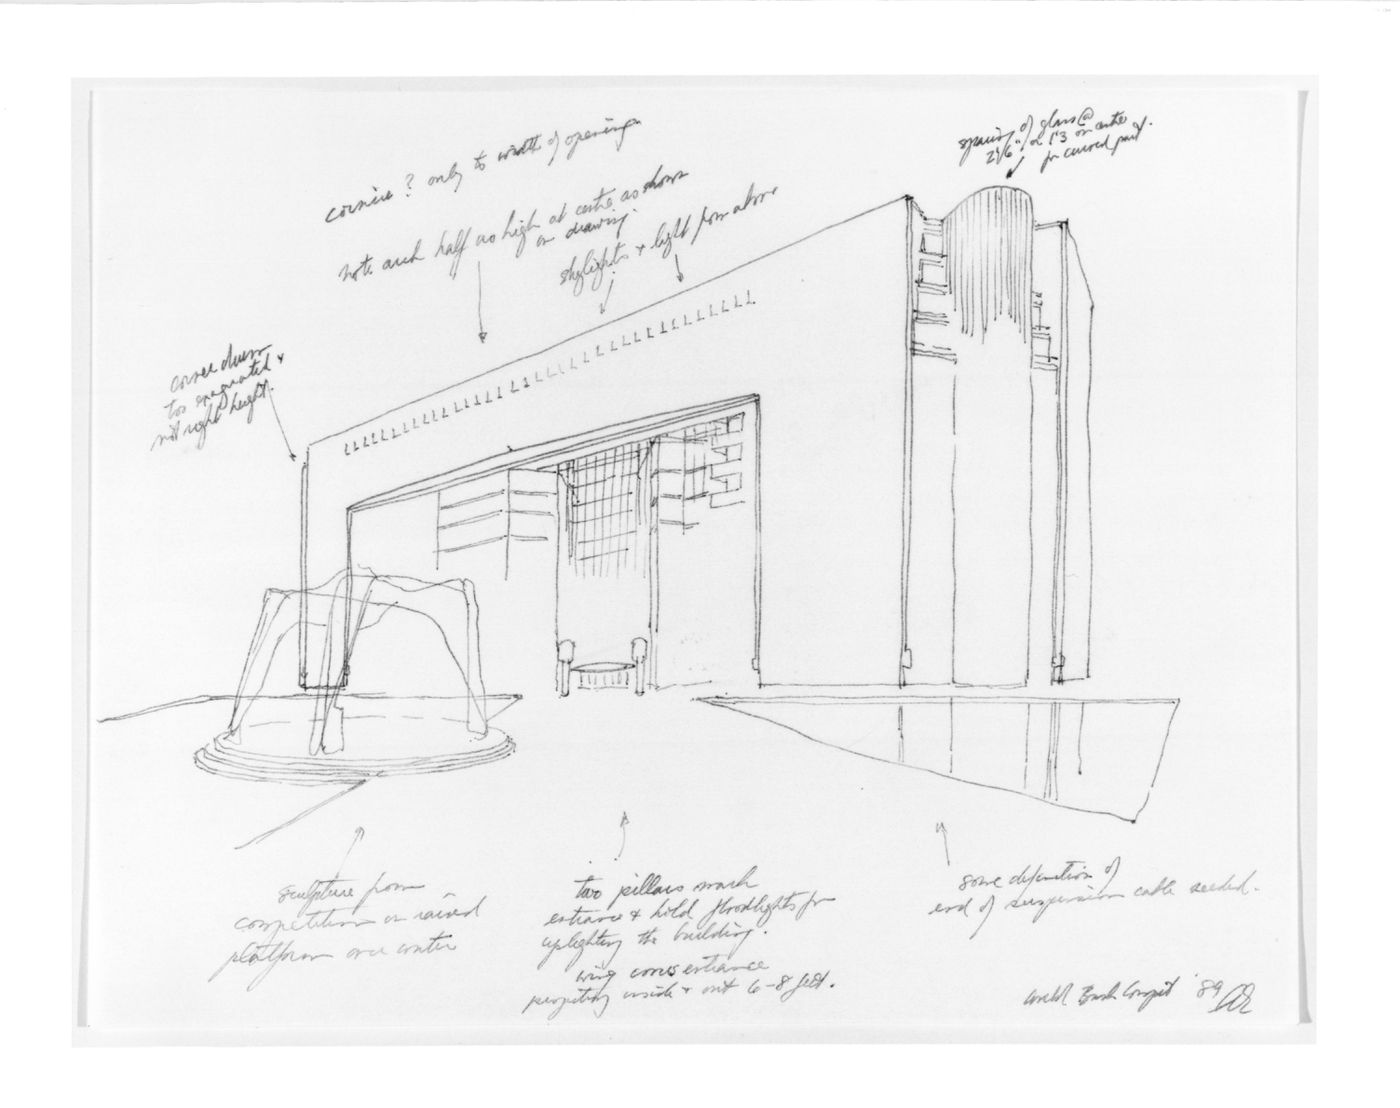 cornice? only to width of opening
note arch half as high at centre as shown
on drawing
skylights + light from above
spacing of glass @
2'6" or 1'3 on centre
for curved part
corner drum
too exaggerated +
not right height.
sculpture from
competition on raised
platform over water
two pillars mark
entrance + hold floodlights for
uplighting the building.
wing cross entrance
projecting inside + out 6-8 feet.
some definition of
end of suspension cable needed.
'89